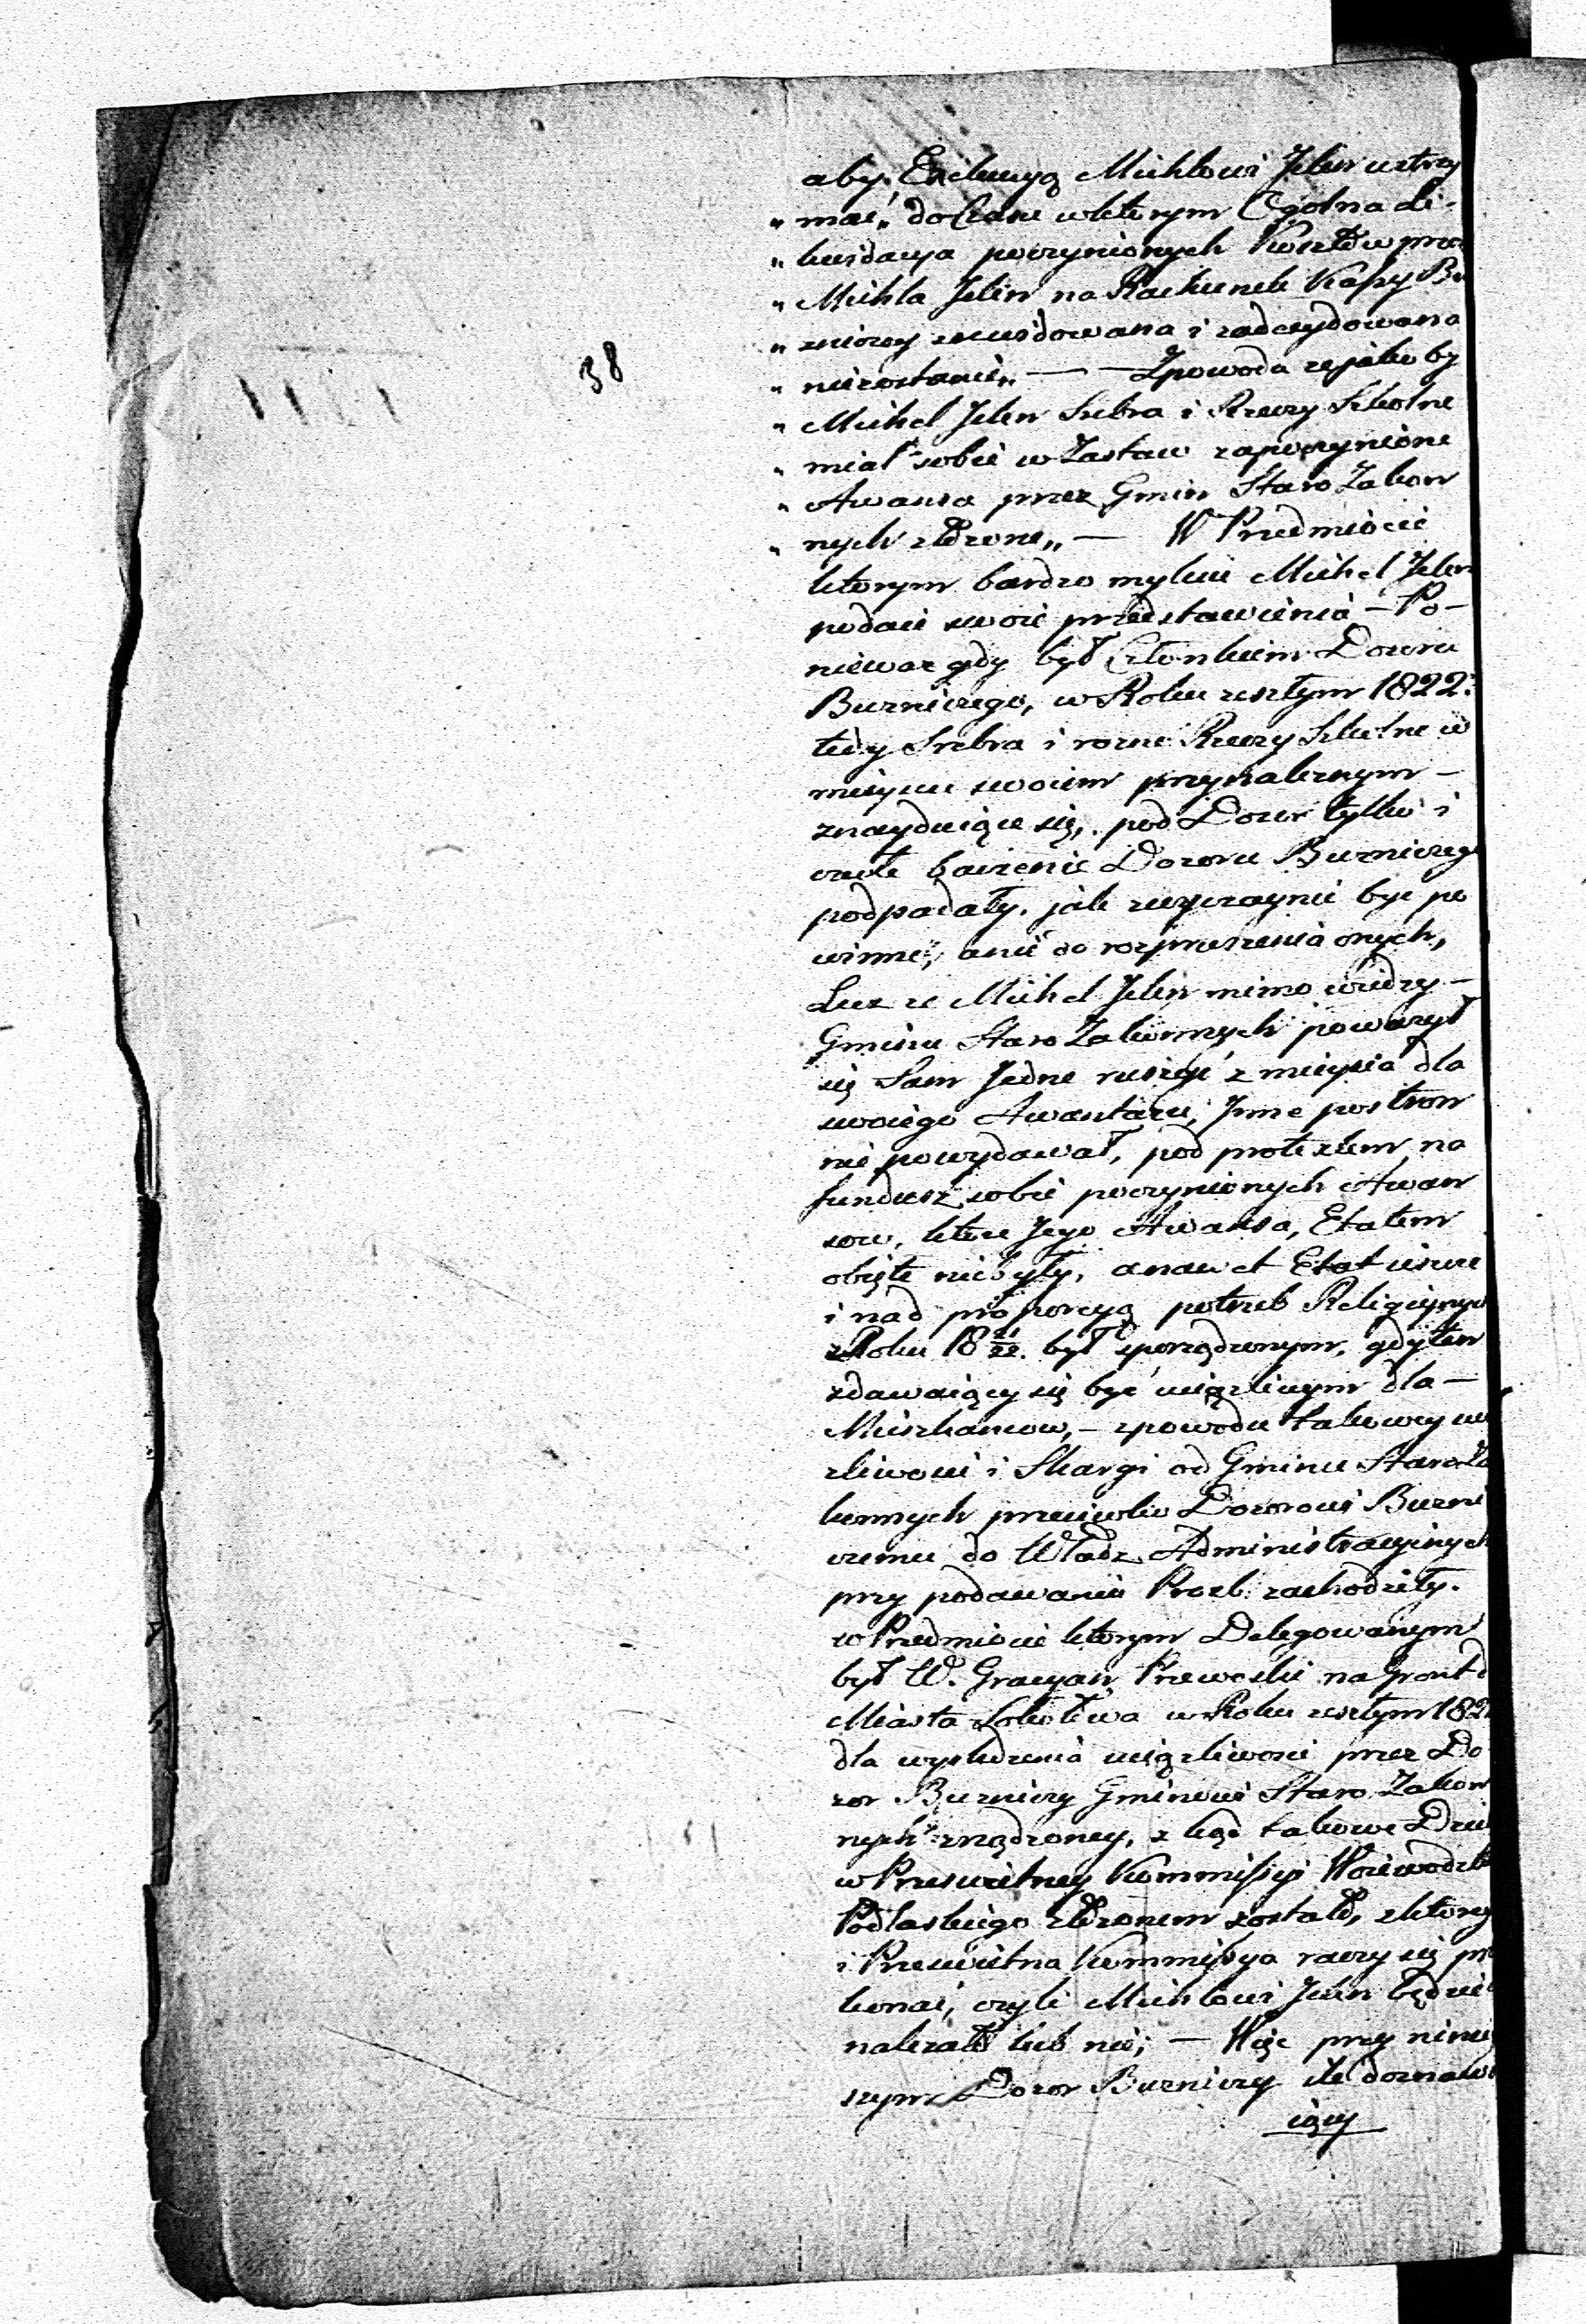 aby Exekucyą Michlowi Jelen wstrzy
„ mać„ do Czasu wktorym Ogolna Li-
„ kwidacya poczynionych Kosztow przez
„ Michla Jelen na Rachunek Kassy Bo
„ zniczey zrewidowana i zadecydowana
„ niezostanie„ — — Zpowodu ze jako by
„ Michel Jelen Srebra i Rzeczy Szkolne
„ miał sobie w Zastaw zapoczynione
„ Awansa przez Gmin Staro Zakon
„ nych złozone„ — W Przedmiocie
ktorym bardzo mylnie Michel Jelen
podaie swoie przedstawienia — Po-
niewaz gdy był Członkiem Dozoru
Buzniczego, w Roku zeszłym 1822.
tedy Srebra i rozne Rzeczy Szkolne w
mieyscu swoiem przynaleznym —
znayduiące się, pod Dozor tylko i
Dozoru Buzniczego
podpadały, jak zwyczaynie byc po
winne, anie do rozpraszania onych,
Lecz ze Michel Jelen mimo wiedzy —
Gminu Staro Zakonnych powazył
się Sam Jedne ruszyć z mieysca dla
swoiego Awantazu, Jnne postron
nie powydawał, pod protextem na
fundusz sobie poczynionych Awan
sow, ktore Jego Awansa, Etatem
obięte niebyły, anawet Etat
i nad proporcyą potrzeb Religiynych
zRoku 18 21/22. był sporządzonym, gdy ten
zdawaiący się być uciązliwym dla —
Mieszkancow, — zpowodu takowey uci
zliwosci i Skargi od Gminu Staro Za
konnych przeciwko Dozorowi Buzni
czemu do Władz Administracyinych
przy podawaniu Prozb zachodziły.
w Przedmiocie ktorym Delegowanym
był W. Gracyan na Gront d
Miasta Sokołowa w Roku zeszłym 182
dla wysledzenia uciązliwosci przez Do
zor Buzniczy Gminowi Staro Zakon
nych zrządzoney, z kąd takowe Dzieł
w Przeswietney Kommissyi Woiewodztwa
Podlaskiego złozonem zostało, z ktorego
i Przeswietna Kommissya raczy się prze
konać, czyli Michlowi Jelen będzie
nalezało lub nie; — Więc przy niniey
szym Dozor Buzniczy ile doznaw
iący
38